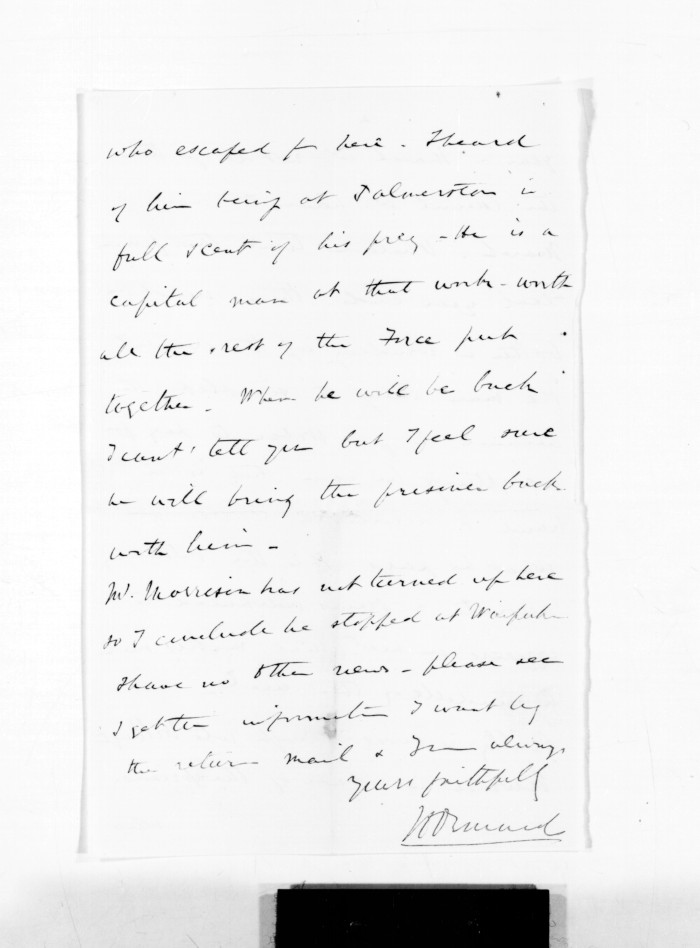 who escaped fm here - I heard
of him being at Palmerston in
full scent of his prey - He is a
capital man at that work - worth
all the rest of the Force put
together - When he will be back
I cant tell you but I feel sure
he will bring the prisoner back
with him -
Mr. Morrison has not turned up here
so I conclude he stopped at
I have no other news - please see
I get the information I want by
the return mail &
always
yours faithfully
JDOrmond